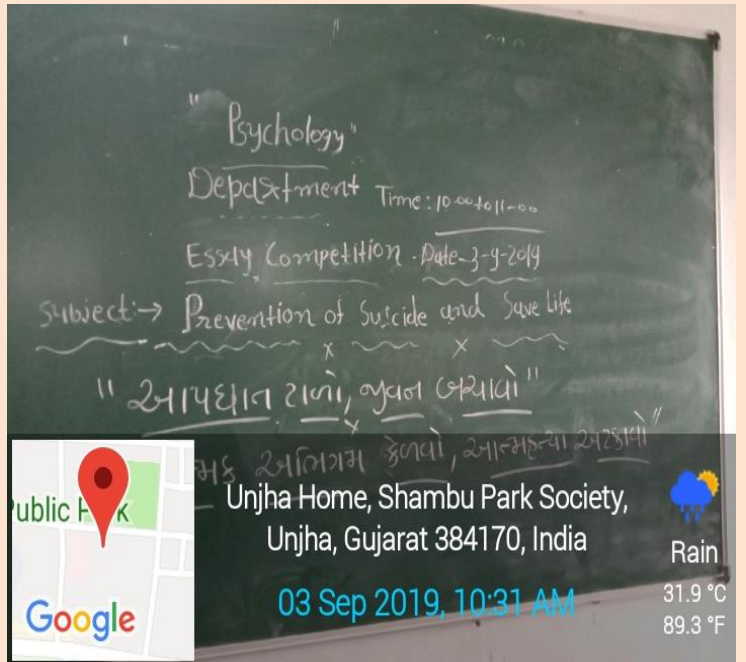 "Psychology"
Department Time: 10.00 to 11-00
Essay Competition. Date-3-9-2019
Subject:→ Prevention of Suicide and Save Life
x x
"આપઘાત ટાળો, જીવન બચાવો"
x
અભિગમ કેળવો, આત્મહત્યા અટકાવો"
ublic P k
Google
Unjha Home, Shambu Park Society,
Unjha, Gujarat 384170, India
03 Sep 2019, 10:31 AM
Rain
31.9 °C
89.3 °F